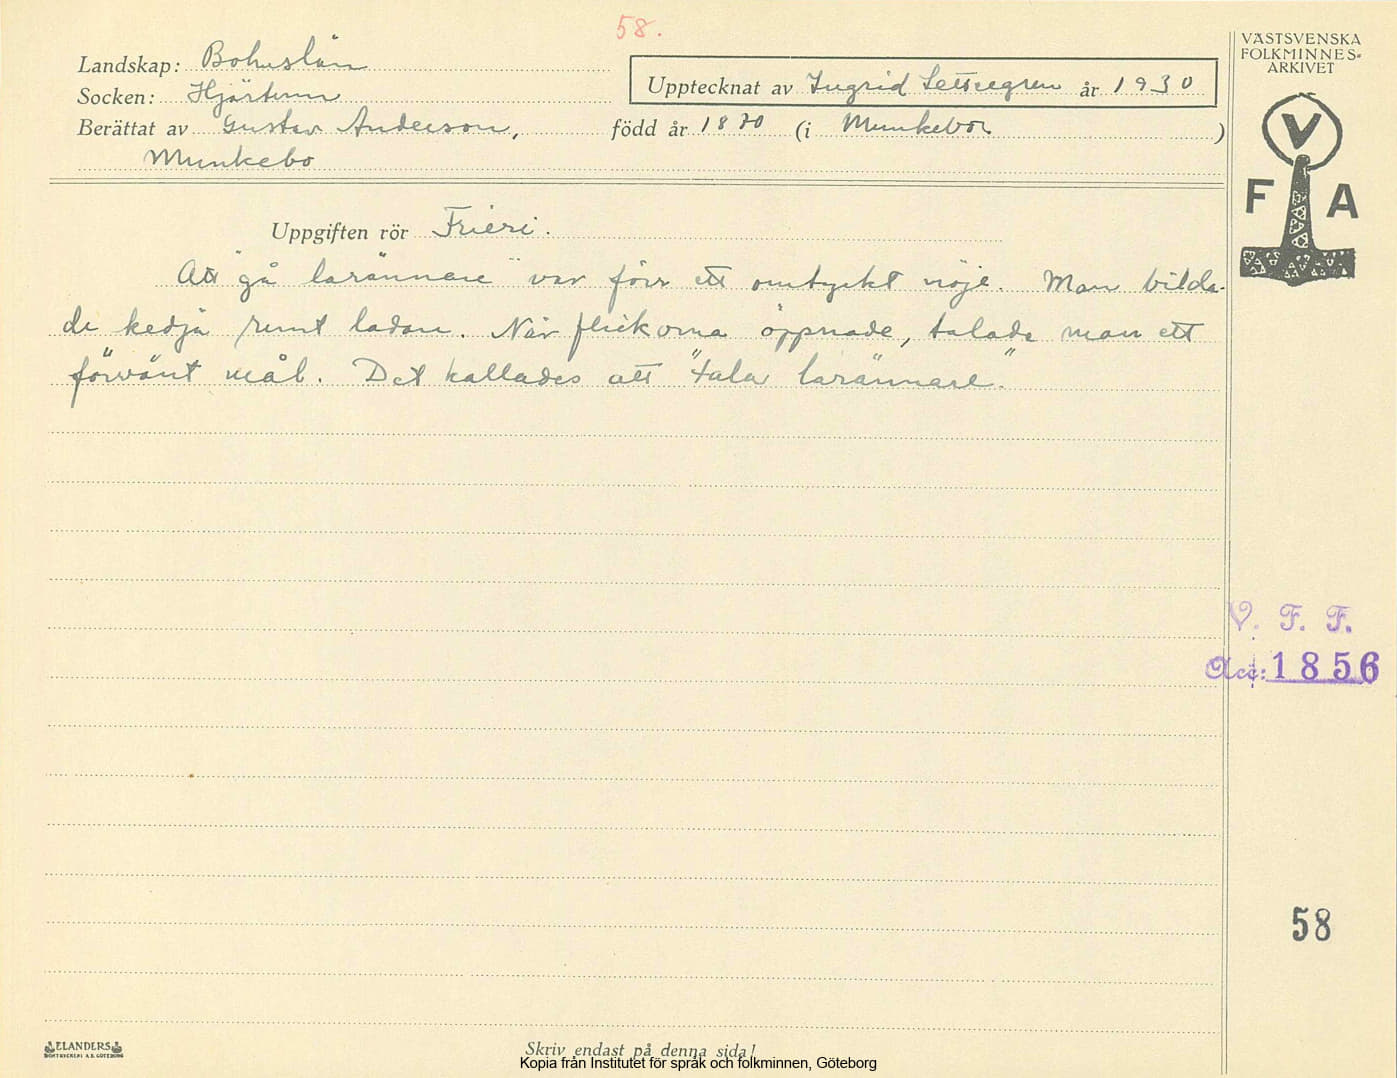 58.
Landskap: Bohuslän
Socken: Hjärtum
Upptecknat av Ingrid år 1930
Berättat av Gustav Anderson, född år 1870 (i Munkebo )
Munkebo
VÄSTSVENSKA
FOLKMINNES-
ARKIVET
V
F A
Uppgiften rör Frieri.
Att "gå larännare" var förr ett omtyckt nöje. Man bilda-
de kedja runt ladan. När flickorna öppnade, talade man ett
förvänt mål. Det kallades att "tala larännare."
V. F. F.
Acc: 1856
58
ELANDERS
BOKTRYCKERI A.B. GÖTEBORG
Skriv endast på denna sida!
Kopia från Institutet för språk och folkminnen, Göteborg